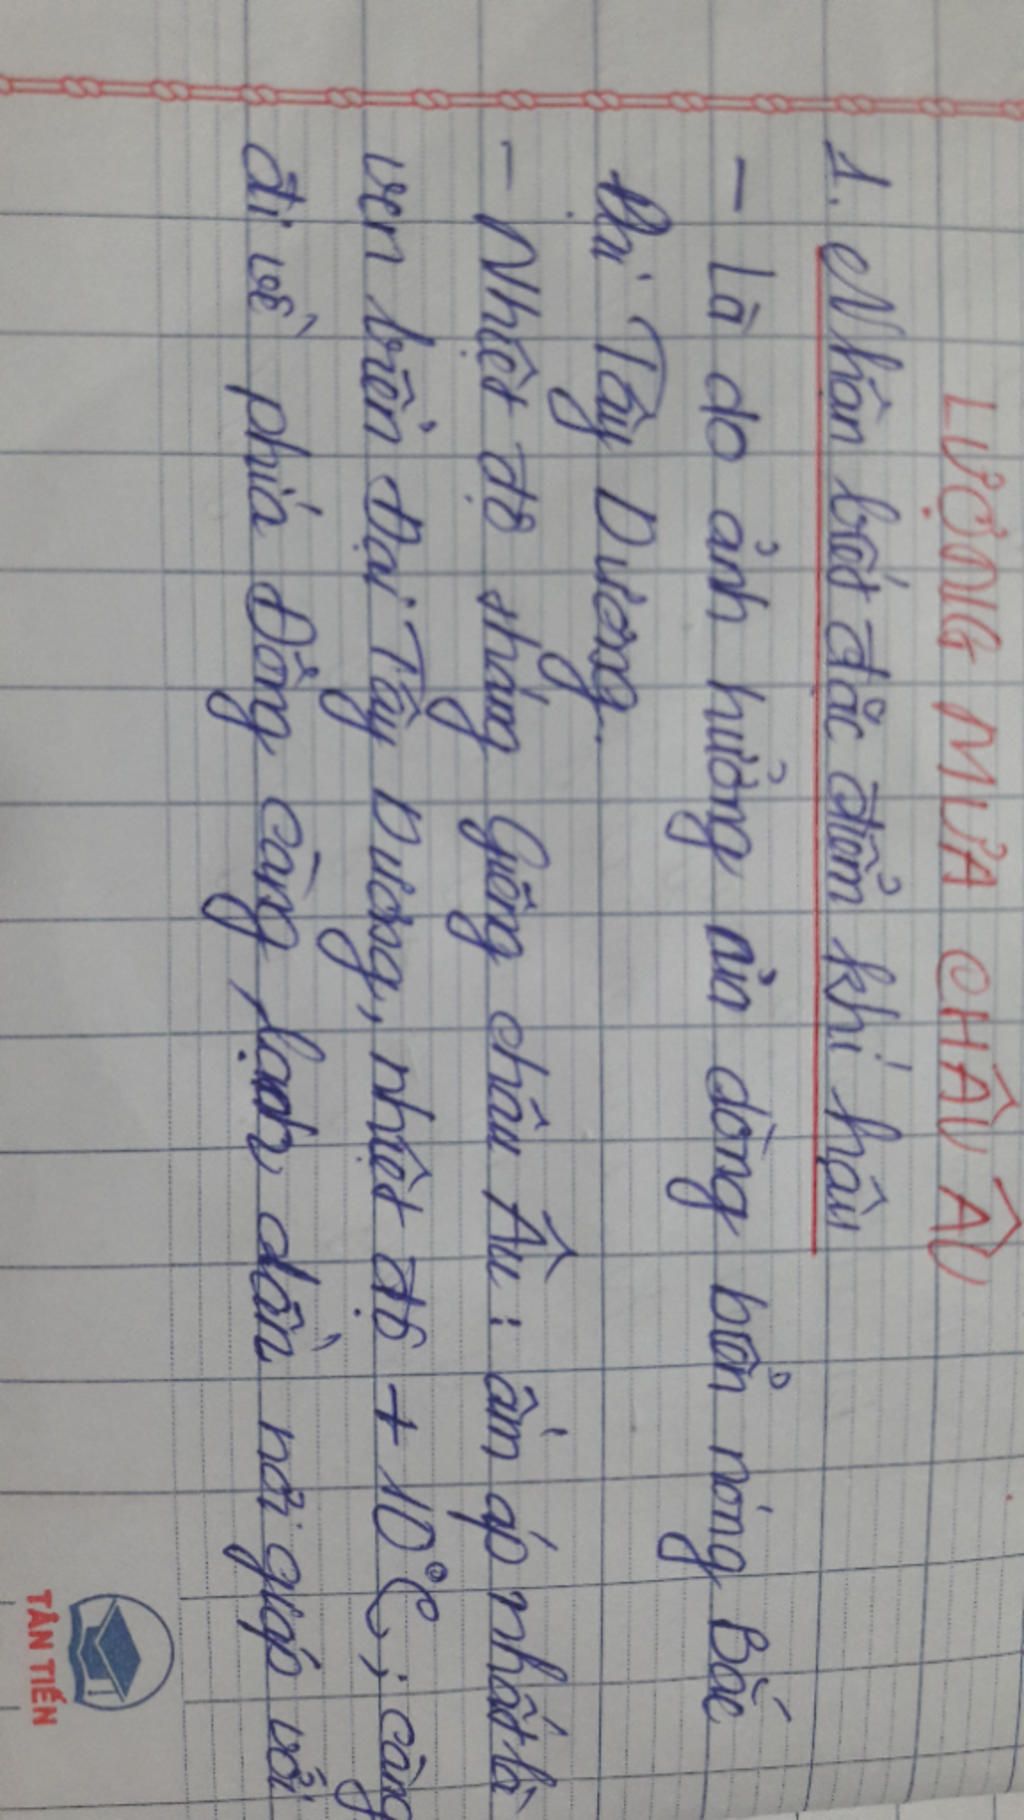 LƯỢNG MƯA CHÂU ÂU
1. Nhân biết đặc điểm khí hậu
- Là do ảnh hưởng của dòng biển nóng Bắc
Đại Tây Dương.
- Nhiệt độ tháng Giêng châu Âu: ấm áp nhất là
ven biển Đại Tây Dương, nhiệt độ + 10°C; càng
đi về phía Đông càng lạnh dần nơi giáp với
TÂN TIẾN